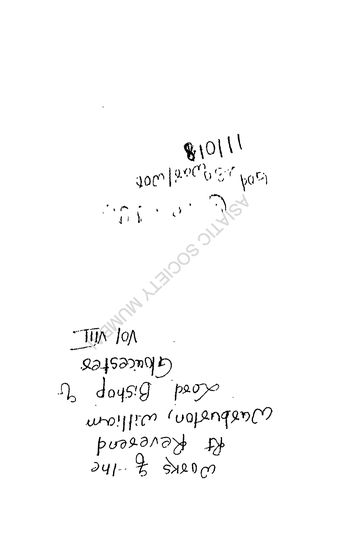 Works of the
Rt Reverend
Warburton, William
Lord Bishop of
Gloucester
Vol VIII
ASIATIC SOCIETY MUMB
War/Wor
111018